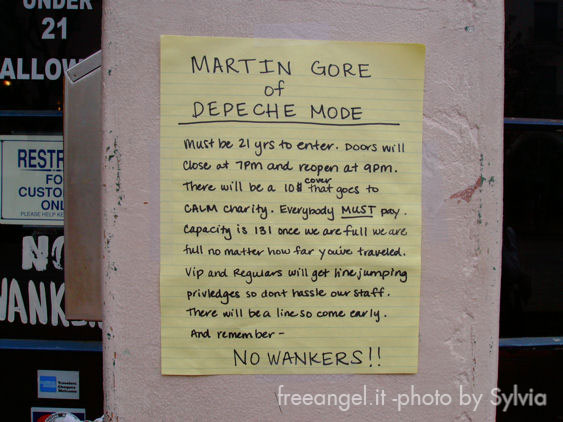 UNDER
21
ALLOW
RESTR
FO
CUSTO
ONL
PLEASE HELP KE
NO
WANK
MARTIN GORE
of
DEPECHE MODE
Must be 21 yrs to enter. Doors will
Close at 7pm and reopen at 9pm.
There will be a 10$ cover that goes to
CALM charity. Everybody MUST pay.
Capacity is 131 once we are full we are
full no matter how far youve traveled.
Vip and Regulars will get line jumping
privledges so dont hassle our staff.
There will be a line so come early.
And remember -
NO WANKERS!!
freeangel.it -photo by Sylvia